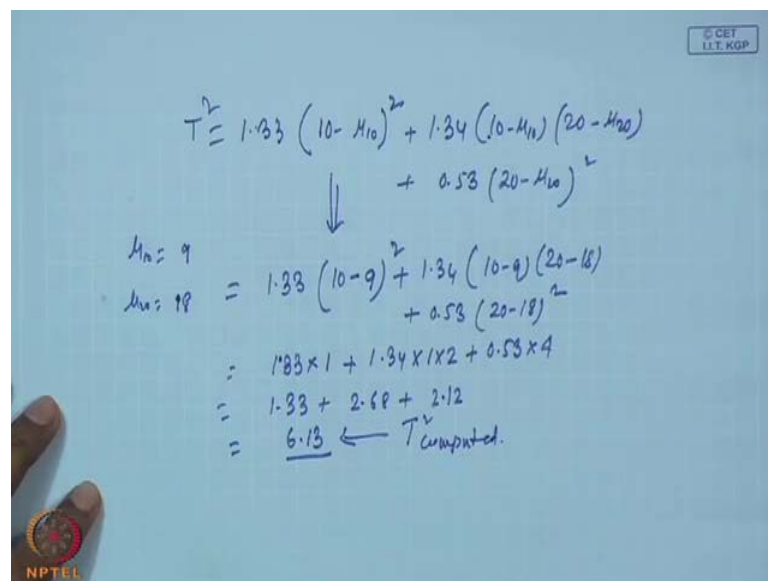 © CET
I.I.T. KGP
T² = 1.33 (10 - μ₁₀)² + 1.34 (10 - μ₁₀) (20 - μ₂₀)
+ 0.53 (20 - μ₂₀)²
⇓
μ₁₀ = 9
μ₂₀ = 18
= 1.33 (10 - 9)² + 1.34 (10 - 9) (20 - 18)
+ 0.53 (20 - 18)²
= 1.33 × 1 + 1.34 × 1 × 2 + 0.53 × 4
= 1.33 + 2.68 + 2.12
= 6.13 ← T² computed.
NPTEL